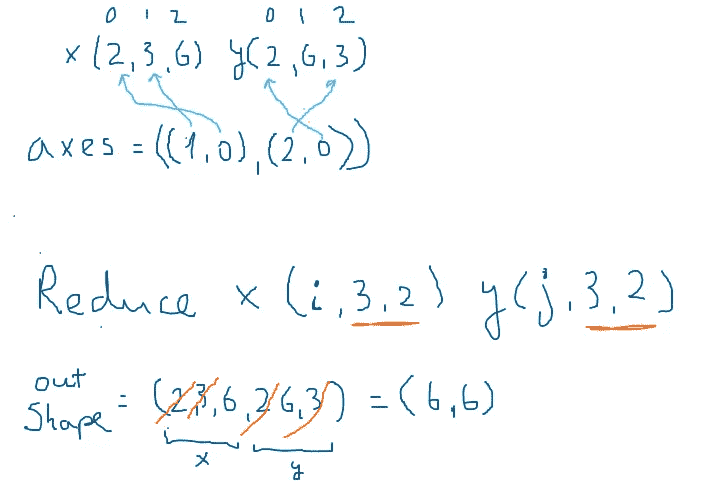 0 1 2 0 1 2
x(2,3,6) y(2,6,3)
axes = ((1,0),(2,0))
Reduce x (i,3,2) y(j,3,2)
out
shape = (2,3,6,2,6,3) = (6,6)
x y